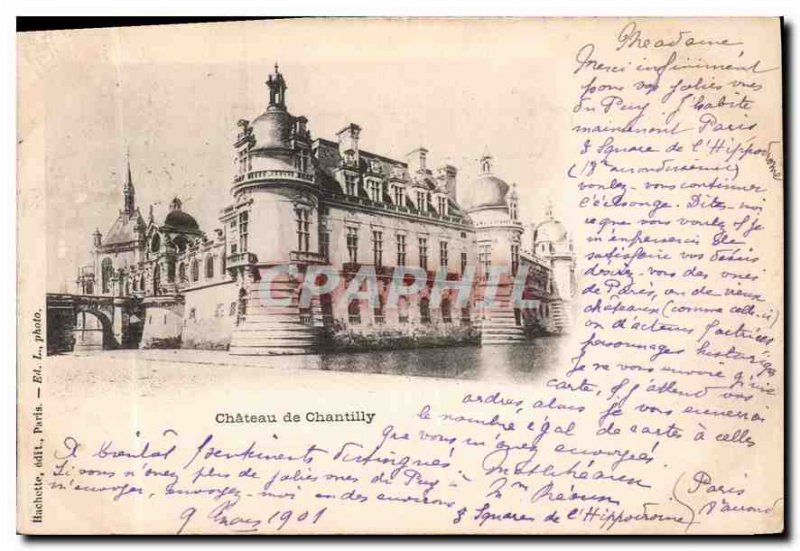 Madame
Merci infiniment
pour vos jolies vues
du Puy. J'habite
maintenant Paris
8 Square de l'Hippodrome
voulez-vous continuer
l'échange. Dites-moi
ce que vous voulez & je
m'empresserai de
satisfaire vos désirs
voulez-vous des vues
de Paris, ou de vieux
châteaux (comme celui-ci)
ou d'acteurs & actrices
personnages historiques
Je ne vous envoie qu'une
carte, & j'attend vos
ordres, alors je vous enverrai
le nombre égal de cartes à celles
que vous m'avez envoyées.
CRAPHIL
Château de Chantilly
A bientôt Sentiments distingués
Si vous n'avez plus de jolies vues du Puy à
m'envoyer, envoyez-moi en des environs
9 Mars 1901
Mme
8 Square de l'Hippodrome
(Paris
Hachette, édit., Paris. — Ed. L., photo.